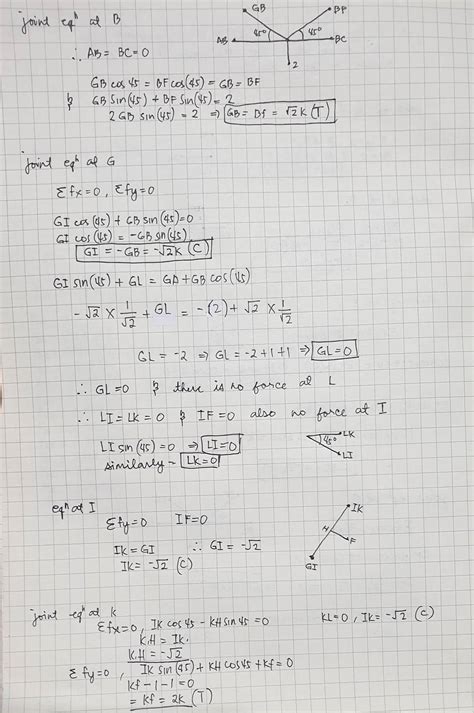 joint eqⁿ at B
GB
BF
AB
45°
45°
BC
2
∴ AB = BC = 0
GB cos 45 = BF cos(45) = GB = BF
& GB Sin(45) + BF Sin(45) = 2
2 GB sin(45) = 2 ⇒ GB = BF = √2K (T)
joint eqⁿ at G
Σfx=0, Σfy=0
GI cos(45) + GB sin(45)=0
GI cos(45) = -GB sin(45)
GI = -GB = -√2K (C)
GI sin(45) + GL = GA+GB cos(45)
-√2 × 1/√2 + GL = -(2) + √2 × 1/√2
GL = -2 ⇒ GL = -2+1+1 ⇒ GL=0
∴ GL=0 & there is no force at L
∴ LI = LK = 0 & IF=0 also no force at I
LI sin(45) = 0 ⇒ LI=0
similarly - LK=0
45°
LK
LI
eqⁿ at I
Σfy=0 IF=0
IK = GI ∴ GI = -√2
IK = -√2 (C)
IK
H
F
GI
joint eqⁿ at K
Σfx=0, IK cos 45 - KH sin 45 = 0
KL=0, IK = -√2 (C)
K.H = IK.
K.H = -√2
Σfy=0, IK sin(45) + KH cos45 + Kf = 0
Kf -1 -1 = 0
= Kf = 2K (T)